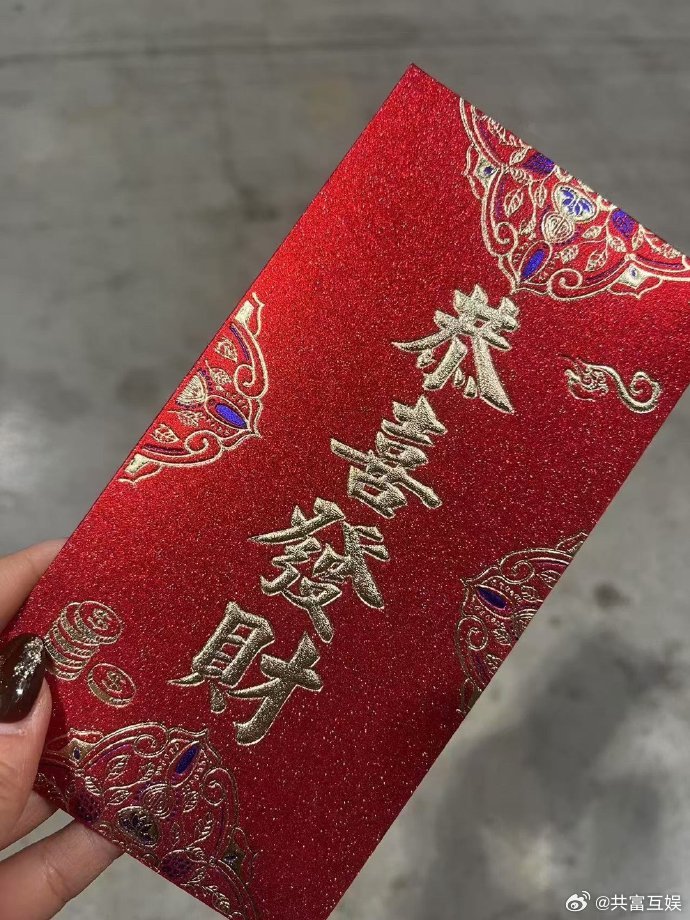 恭喜發財
@共富互娱